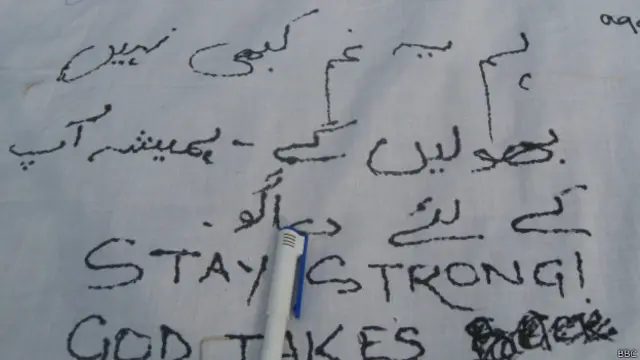 ہم یہ غم کبھی نہیں
بھولیں گے - ہمیشہ آپ
کے لئے دعاگو -
STAY STRONG!
GOD TAKES
BBC